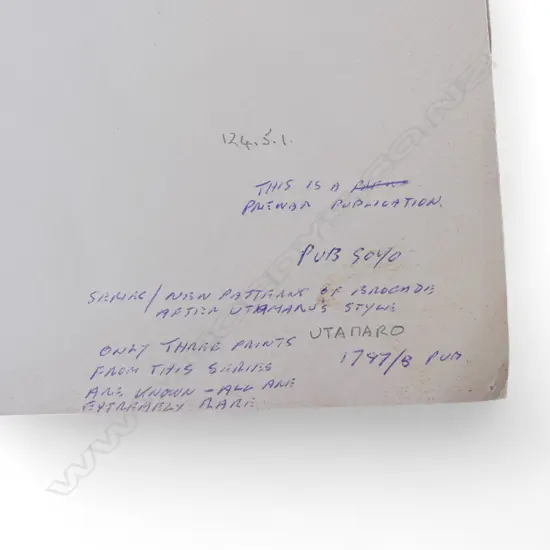 124.5.1.
THIS IS A
PREWAR PUBLICATION.
PUB GOYO
SERIES/NEW PATTERNS OF BROCADE
AFTER UTAMARO'S STYLE
ONLY THREE PRINTS UTAMARO
FROM THIS SERIES 1797/8 PUB.
ARE KNOWN - ALL ARE
EXTREARLY RARE